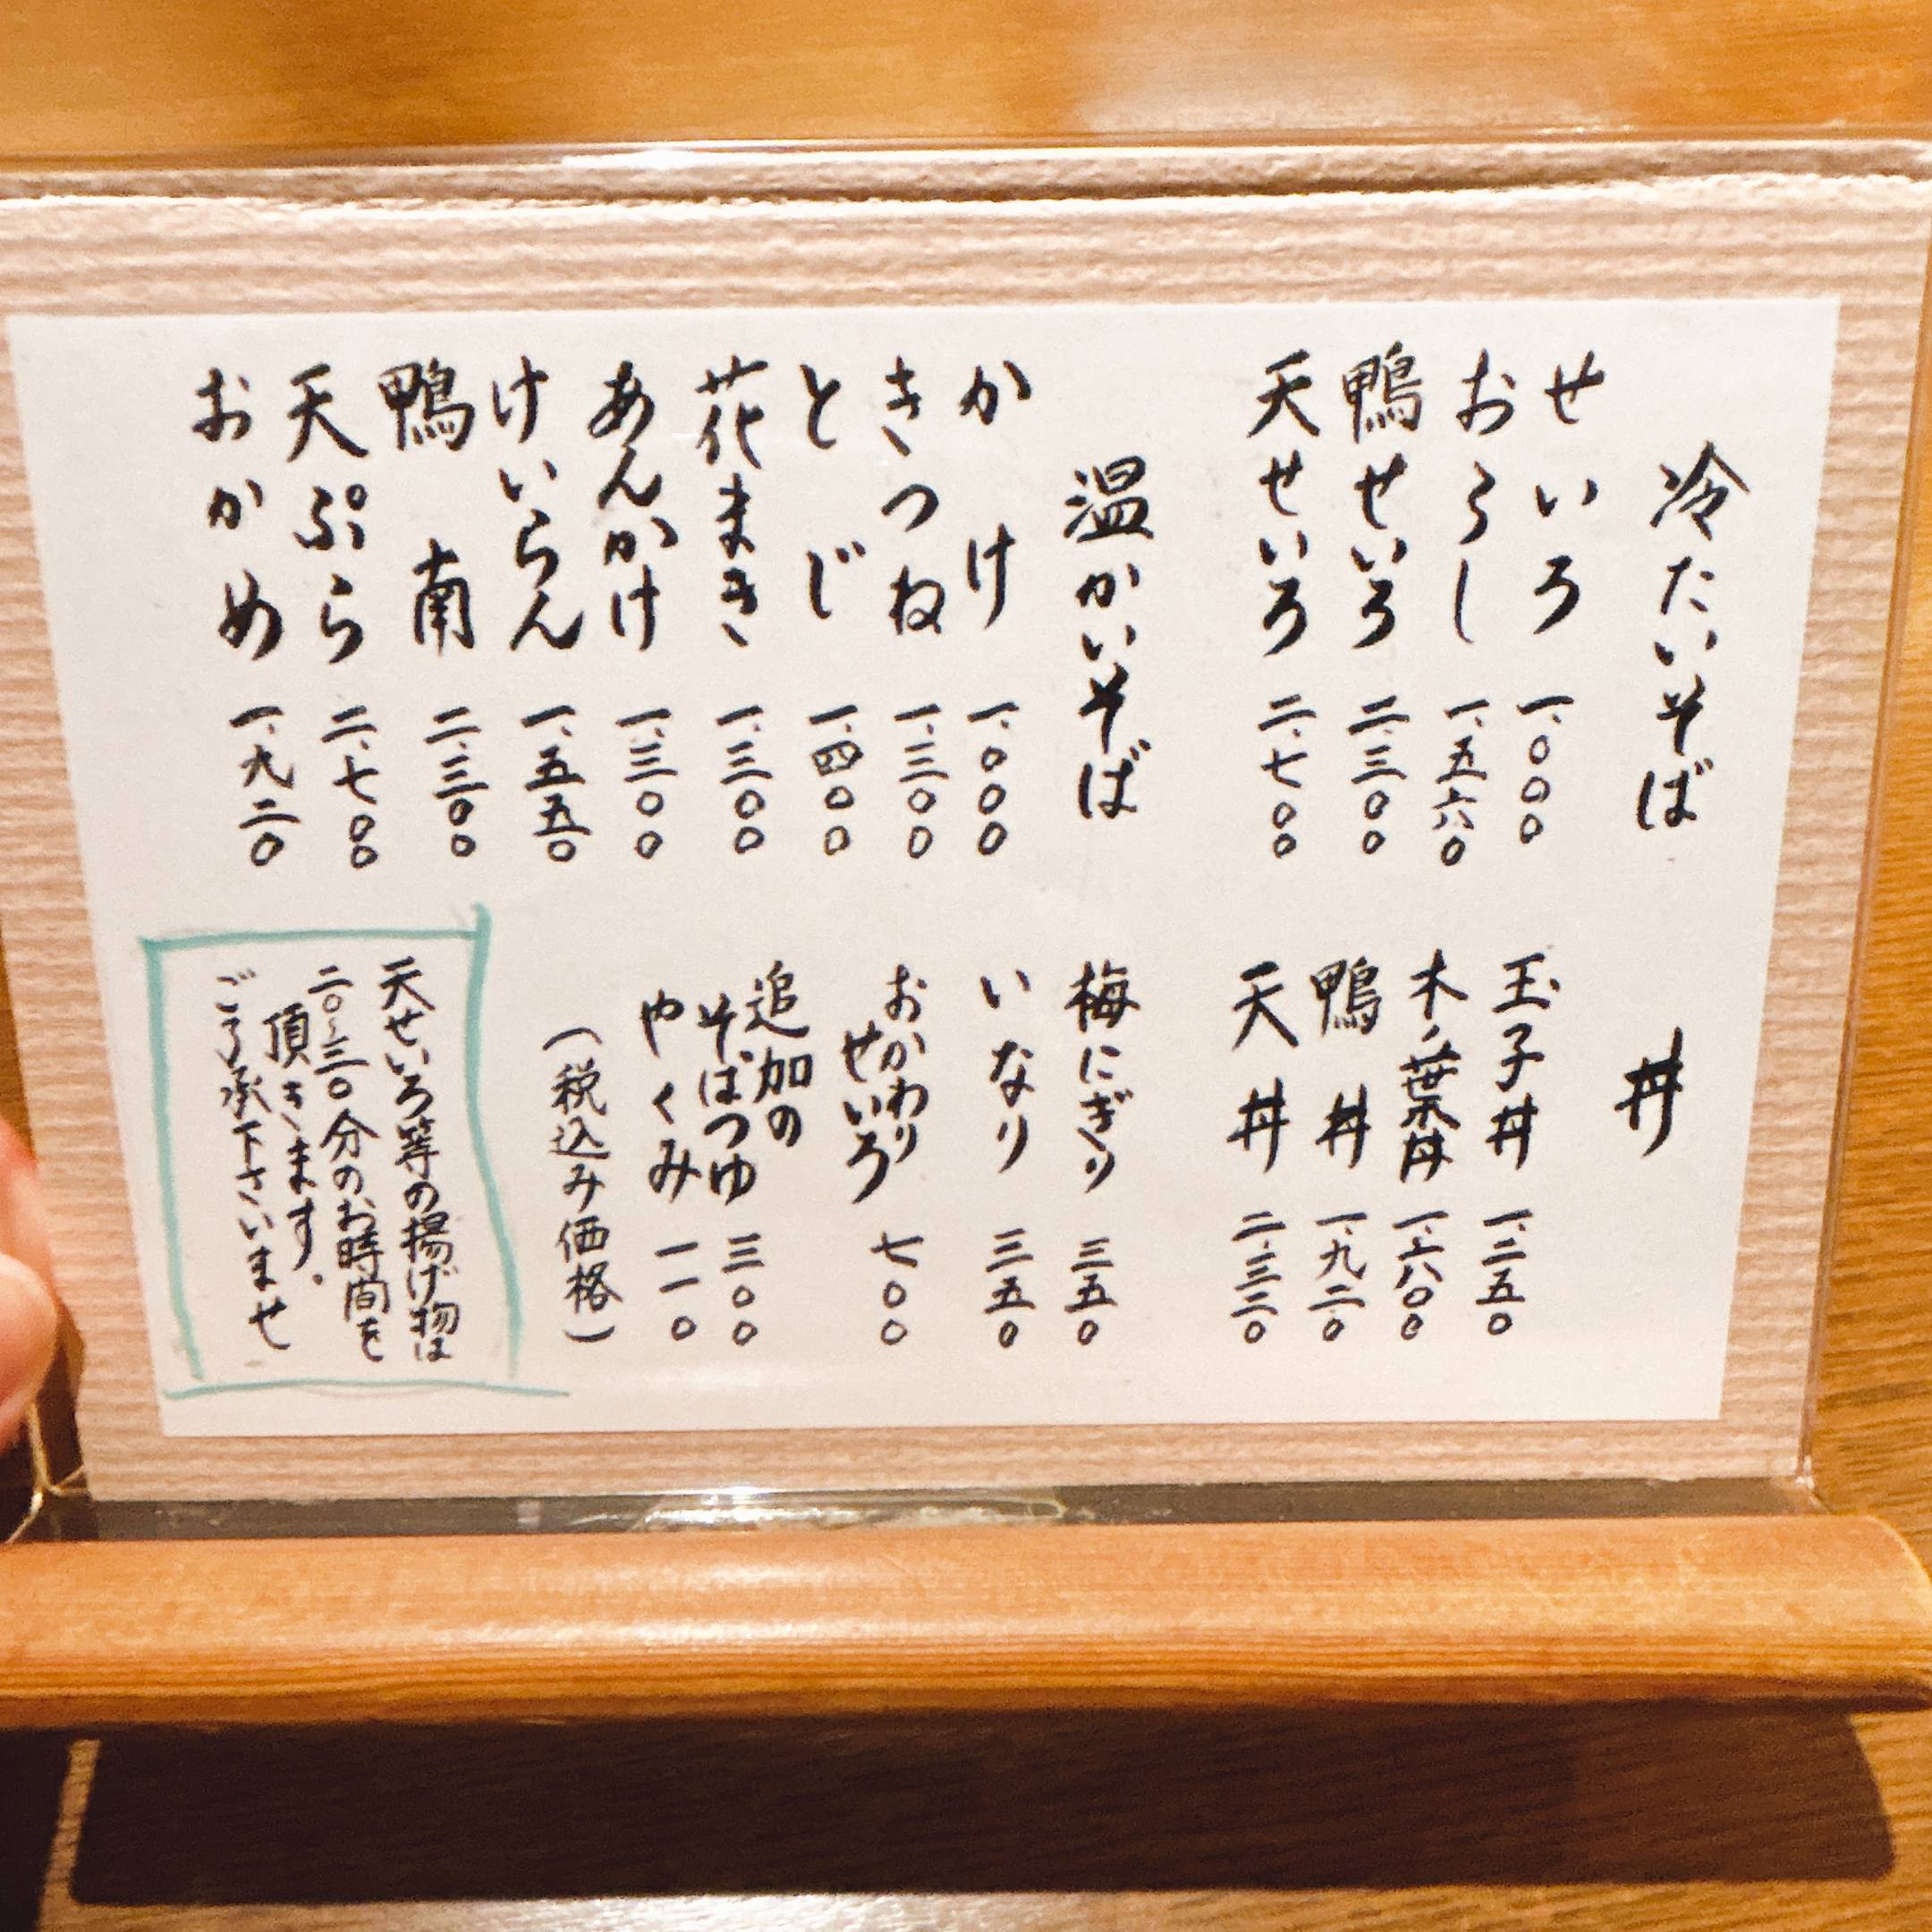 冷たいそば
せいろ 一、〇〇〇
おろし 一、五六〇
鴨せいろ 二、三〇〇
天せいろ 二、七〇〇
温かいそば
かけ 一、〇〇〇
きつね 一、三〇〇
とじ 一、四〇〇
花まき 一、三〇〇
あんかけ 一、三〇〇
けいらん 一、五五〇
鴨南 二、三〇〇
天ぷら 二、七〇〇
おかめ 一、九二〇
丼
玉子丼 一、二五〇
木ノ葉丼 一、六〇〇
鴨丼 一、九二〇
天丼 二、三三〇
梅にぎり 三五〇
いなり 三五〇
おかわり
せいろ 七〇〇
追加の
そばつゆ 三〇〇
やくみ 一一〇
(税込み価格)
天せいろ等の揚げ物は
二〇〜三〇分のお時間を
頂きます。
ご了承下さいませ